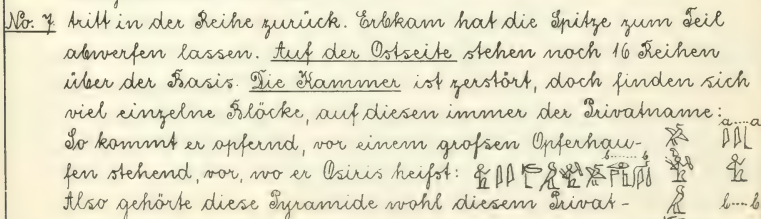 No. 7. tritt in der Reihe zurück. Erbkam hat die Spitze zum Teil
abwerfen lassen. Auf der Ostseite stehen noch 16 Reihen
über der Basis. Die Kammer ist zerstört, doch finden sich
viel einzelne Blöcke, auf diesen immer der Privatname:
a.....a
So kommt er opfernd, vor einem grofsen Opferhau-
b........b
fen stehend, vor, wo er Osiris heifst:
Also gehörte diese Pyramide wohl diesem Privat- b....b